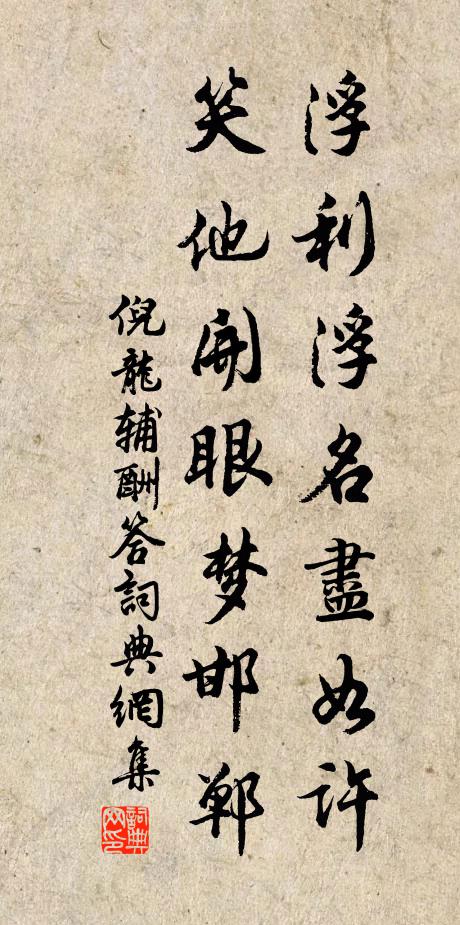 浮利浮名盡如許
笑他開眼梦邯鄲
倪龍辅酬答詞典網集
詞典
网印